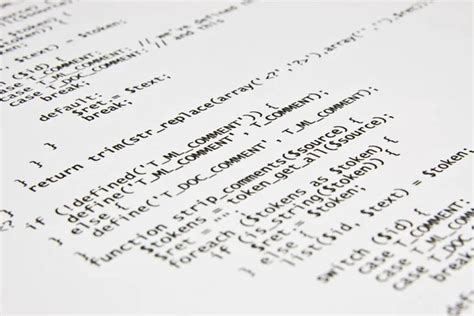 ($id) {
case T_COMMENT: // we've defined
case T_ML_COMMENT: // and this
case T_DOC_COMMENT:
break;
default:
$ret .= $text;
break;
}
}
}
return trim(str_replace(array('<?','?>'),array('',
}
if (!defined('T_ML_COMMENT')) {
define('T_ML_COMMENT', T_COMMENT);
} else {
define('T_DOC_COMMENT', T_ML_COMMENT);
}
function strip_comments($source) {
$tokens = token_get_all($source);
$ret =
foreach ($tokens as $token) {
if (is_string($token)) {
$ret .= $token;
} else {
list($id, $text) = $token;
switch ($id) {
case T_COMMENT:
case T_ML_COMM
case T_DOC
break
defau